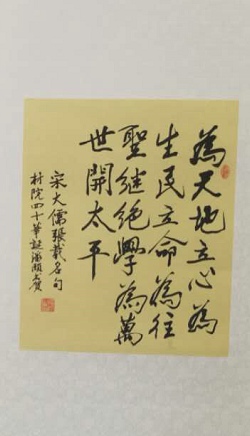 為天地立心為
生民立命為往
聖继絶學為萬
世開太平
宋大儒張載名句
村院四十華誕